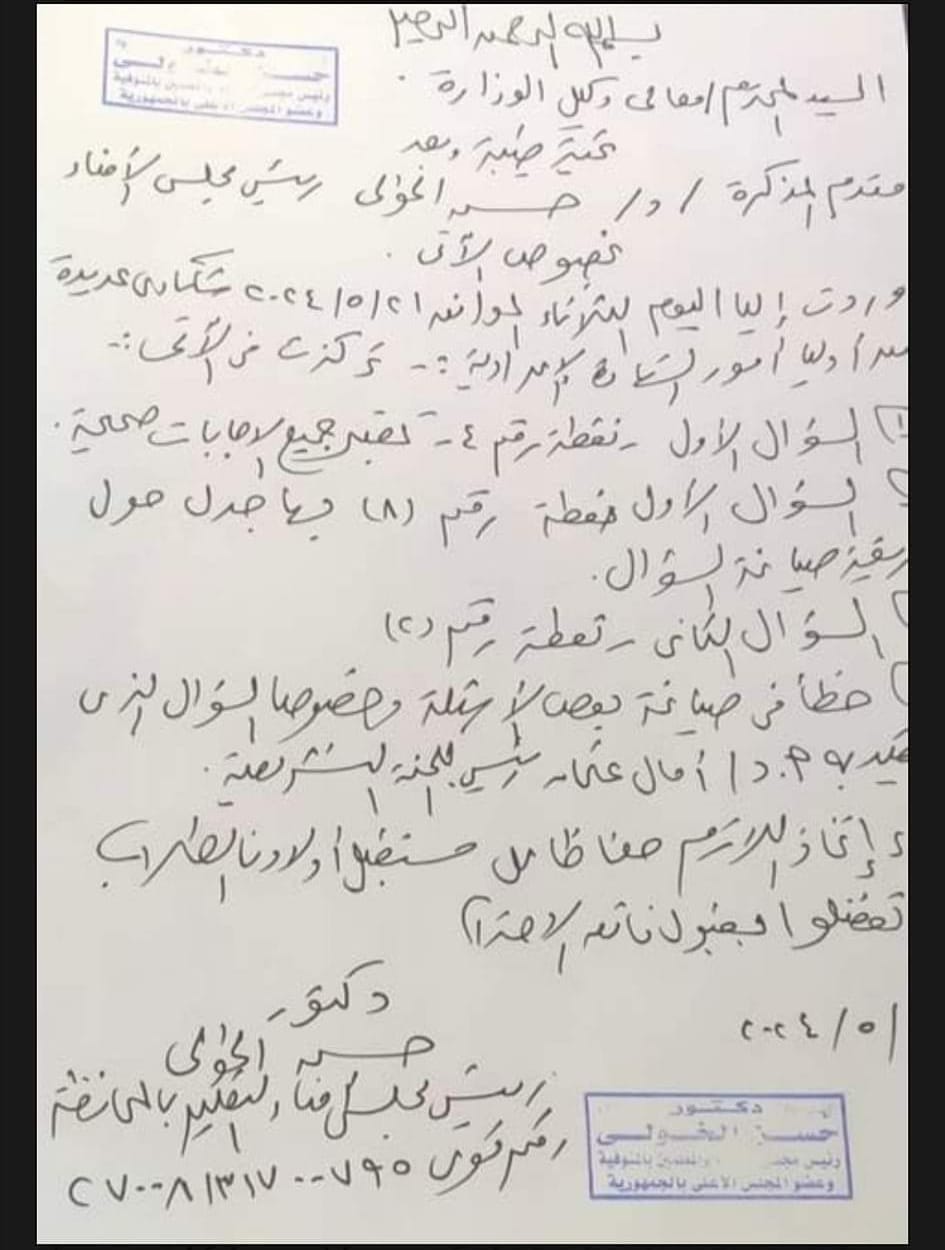 بسم الله الرحمن الرحيم
دكتور
رئيس والمعلمين بالمنوفية
وعضو المجلس الأعلى بالجمهورية
السيد المحترم / معالى وكيل الوزارة .
تحية طيبة وبعد
مقدم المذكرة / د / حسن الخولى رئيس مجلس الأمناء
بخصوص الآتى .
وردت إلينا اليوم الثلاثاء الموافق ٢٠٢٤/٥/٢١ شكاوى عديدة
من أوليا أمور الشهادة الإعدادية :- تركزت فى الآتى :-
١) السؤال الأول - نقطة رقم ٤ - تعتبر جميع الاجابات صحيحة .
السؤال الأول نقطة رقم (٨) فيها جدل حول
صياغة السؤال .
السؤال الثانى - نقطة رقم (٢)
خطأ فى صياغة بعض الأسئلة وخصوصا السؤال الذى
به م.د / أمال عثمان رئيس اللجنة التشريعية .
إتخاذ اللازم حفاظا على مستقبل أولادنا الطلاب
تفضلوا بقبول فائق الاحترام
/ ٥ / ٢٠٢٤
دكتور
حسن الخولى
رئيس مجلس أمناء التعليم بالمحافظة
رقم قومى ٢٧٠٠٨١٣١٧٠٠٧٩٥
دكتور
حسن الخولى
رئيس والمعلمين بالمنوفية
وعضو المجلس الأعلى بالجمهورية